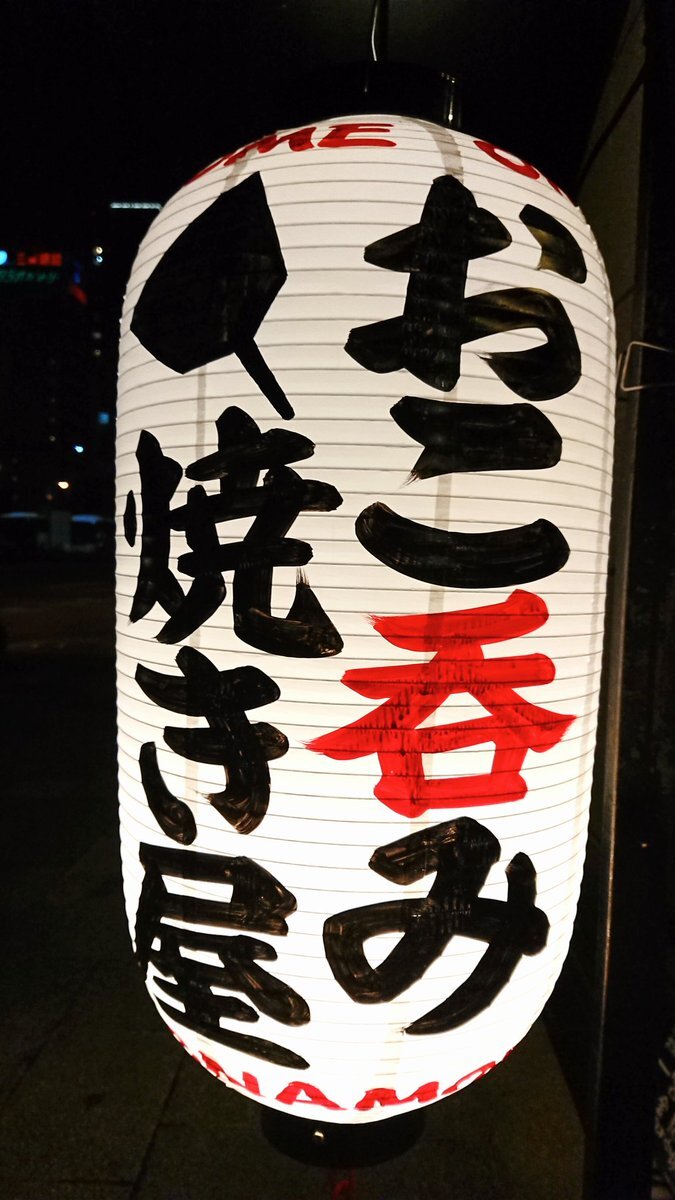 OME O
おこ呑み
焼き屋
NAMO